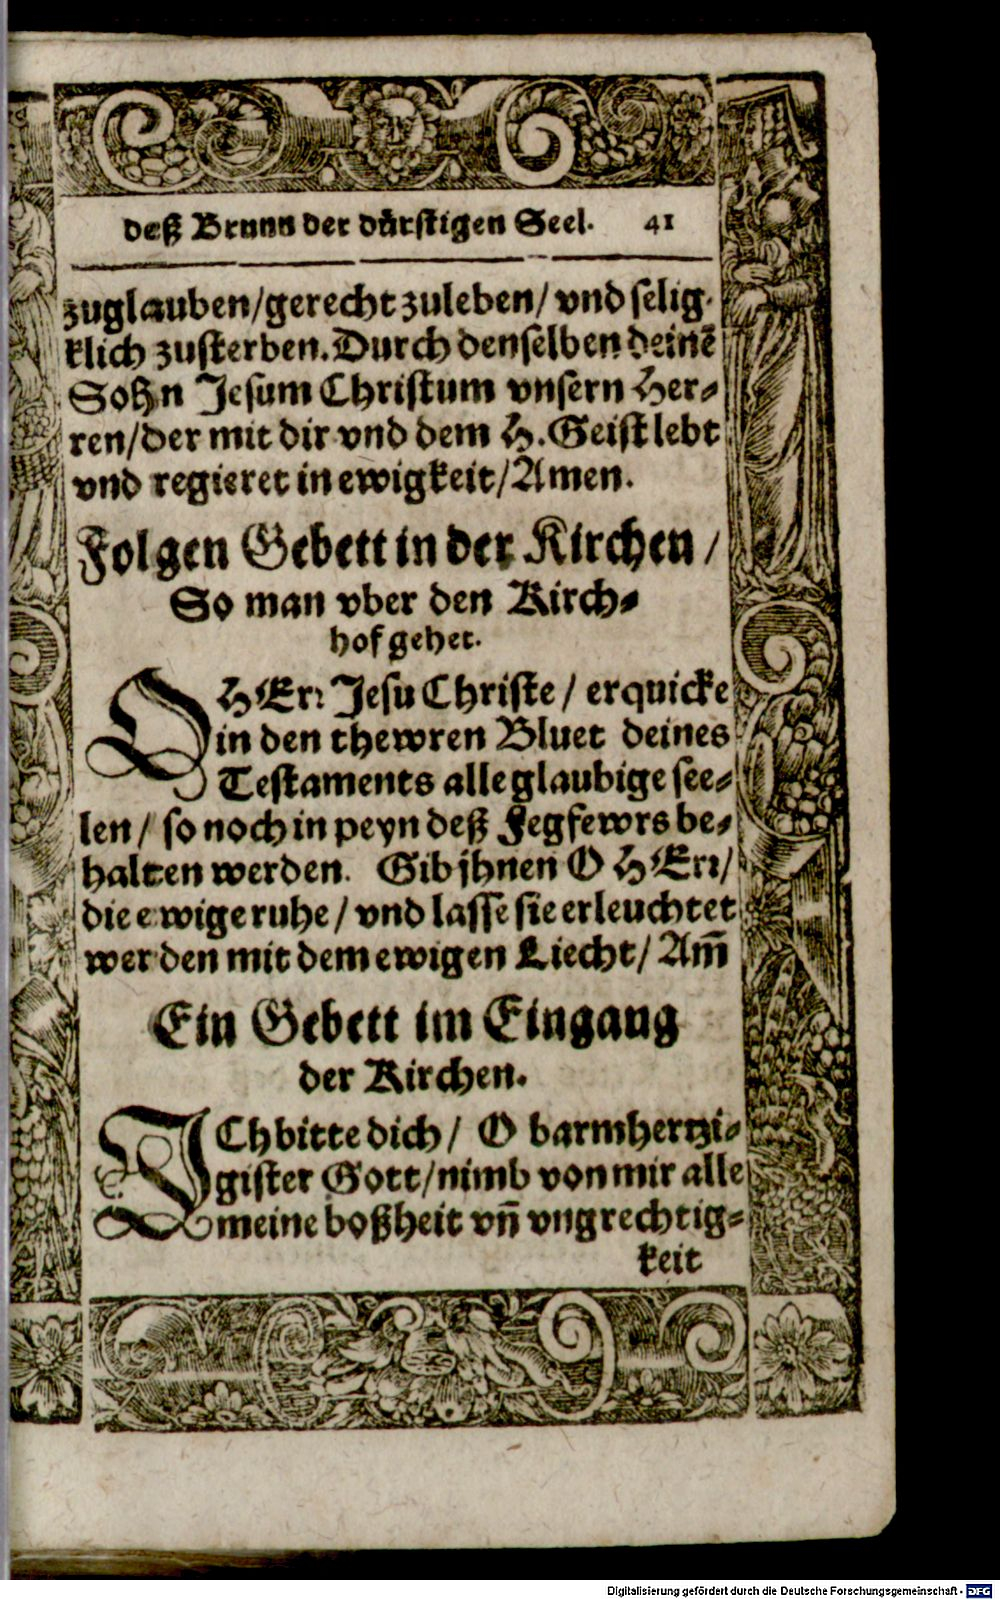 deß Brunn der dürstigen Seel. 41
zuglauben/gerecht zuleben/ vnd selig-
klich zusterben. Durch denselben deinē
Sohn Jesum Christum vnsern Her-
ren/der mit dir vnd dem H. Geist lebt
vnd regieret in ewigkeit/Amen.
Folgen Gebett in der Kirchen/
So man vber den Kirch-
hof gehet.
O HErr Jesu Christe/ erquicke
in den thewren Bluet deines
Testaments alle glaubige see-
len/ so noch in peyn deß Fegfewrs be-
halten werden. Gib jhnen O HErr/
die ewige ruhe/ vnd lasse sie erleuchtet
werden mit dem ewigen Liecht/ Am̄
Ein Gebett im Eingang
der Kirchen.
ICh bitte dich/ O barmhertzi-
gister Gott/nimb von mir alle
meine boßheit vn̄ vngrechtig-
keit
Digitalisierung gefördert durch die Deutsche Forschungsgemeinschaft - DFG